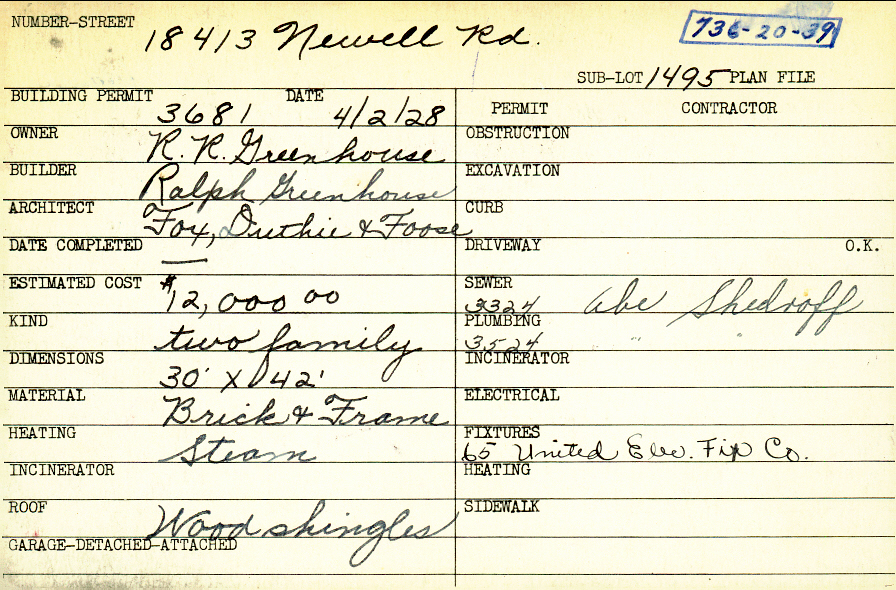 NUMBER-STREET 18413 Newell Rd. 736-20-39
SUB-LOT 1495 PLAN FILE
BUILDING PERMIT 3681 DATE 4/2/28
PERMIT CONTRACTOR
OWNER R. R. Greenhouse
OBSTRUCTION
BUILDER Ralph Greenhouse
EXCAVATION
ARCHITECT Fox, Duthie & Foose
CURB
DATE COMPLETED —
DRIVEWAY O.K.
ESTIMATED COST $12,000 00
SEWER 3324 Abe Shedroff
KIND two family
PLUMBING 3524 " "
DIMENSIONS 30' X 42'
INCINERATOR
MATERIAL Brick & Frame
ELECTRICAL
HEATING Steam
FIXTURES 65 United Elec. Fix Co.
INCINERATOR
HEATING
ROOF Wood shingles
SIDEWALK
GARAGE-DETACHED-ATTACHED